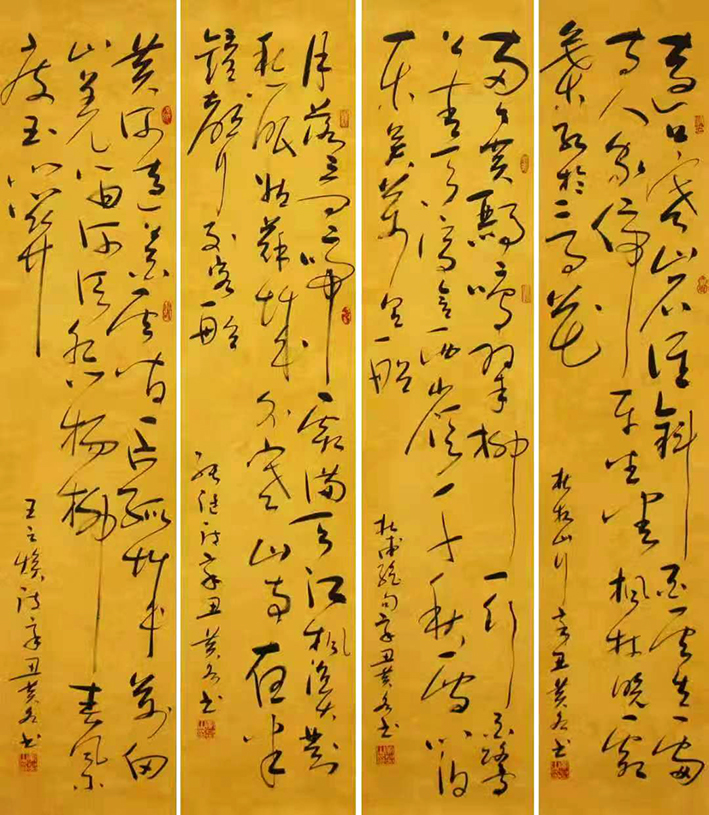 遠上寒山石徑斜白雲生處
有人家停車坐愛枫林晚霜
葉紅於二月花
杜牧山行辛丑黄书
两个黄鹂鸣翠柳一行白鹭
上青天窗含西岭千秋雪门泊
東吴萬里船
杜甫绝句辛丑黄书
月落乌啼霜满天江枫渔火對
愁眠姑蘇城外寒山寺夜半
鐘聲到客船
张继诗辛丑黄书
黄河遠上白雲间一片孤城萬仞
山羌笛何须怨楊柳春風不
度玉门関
王之焕诗辛丑黄书